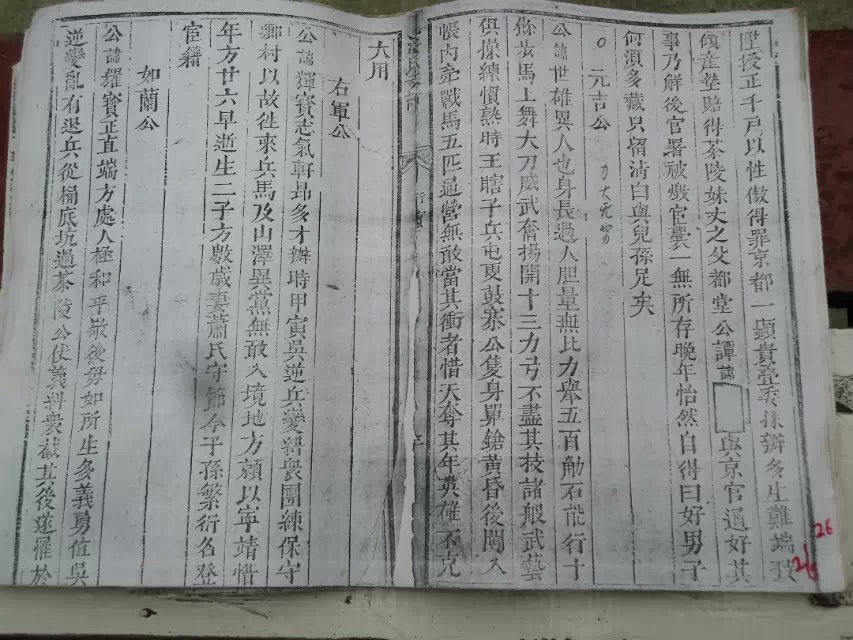 陞授正千戶以性傲得罪京都一顯貴叠委採辦多生難端致
傾產墊賠得茶陵妹丈之父都堂公譚諱 與京官通好其
事乃解後官署被燬官囊一無所存晚年怡然自得曰好男子
何須多藏只留清白與兒孫足矣
元吉公
公諱世雄異人也身長過人胆量無比力舉五百觔石能行十
餘步馬上舞大刀威武奮揚開十三力弓不盡其技諸般武藝
俱操練慣熟時王瞎子兵屯夏鼓寨公隻身單鎗黃昏後闖入
帳內牽戰馬五匹通營無敢當其衝者惜天奪其年英雄不克
大用
右軍公
公諱輝寶志氣軒昂多才辦時甲寅吳逆兵變糾衆團練保守
鄉村以故往來兵馬及山澤異黨無敢入境地方頼以寧靖惜
年方廿六早逝生二子方數歲妻蕭氏守節今子孫繁衍名登
官籍
如蘭公
公諱耀寶正直端方處人極和平敬後勞如所生多義勇值吳
逆變亂有退兵從桶底坑過茶陵公仗義糾衆截其後遂羅於
26
26